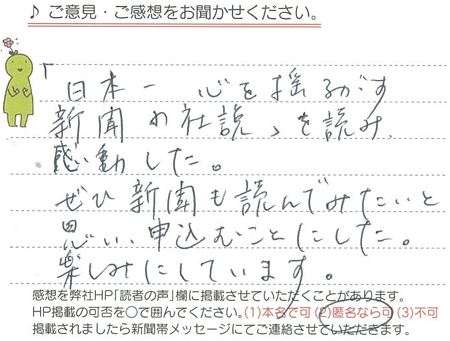 ♪ ご意見・ご感想をお聞かせください。
「日本一 心を揺るがす
新聞の社説」を読み、
感動した。
ぜひ新聞も読んでみたいと
思い、申込むことにした。
楽しみにしています。
感想を弊社HP「読者の声」欄に掲載させていただくことがあります。
HP掲載の可否を○で囲んでください。(1)本名で可 (2)匿名なら可 (3)不可
掲載されましたら新聞帯メッセージにてご連絡させていただきます。